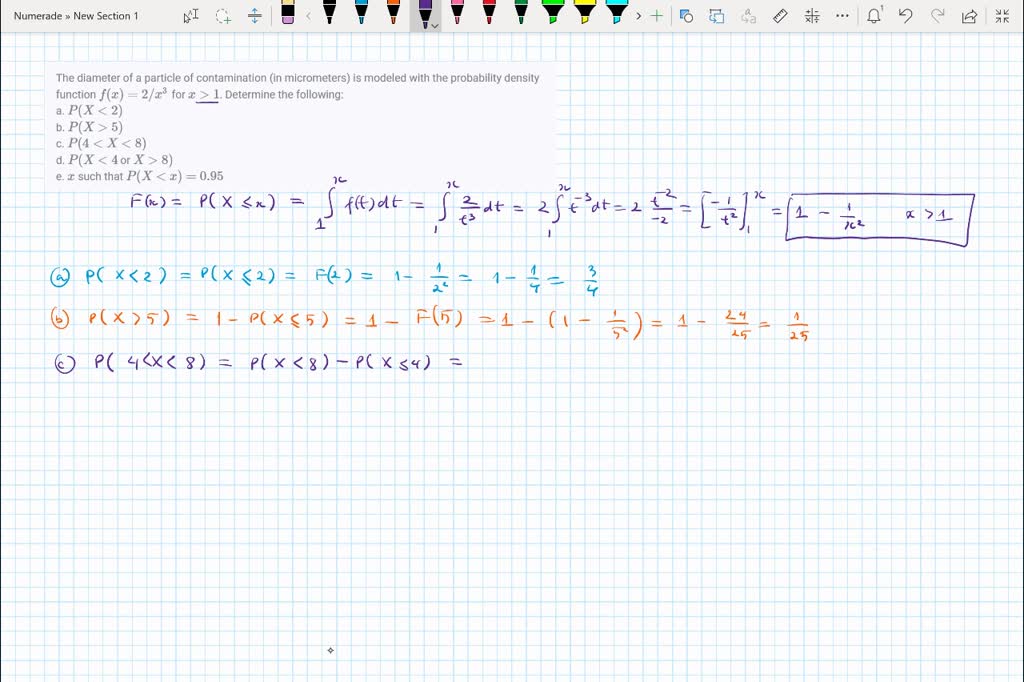 Numerade » New Section 1
The diameter of a particle of contamination (in micrometers) is modeled with the probability density
function f(x) = 2/x³ for x > 1. Determine the following:
a. P(X < 2)
b. P(X > 5)
c. P(4 < X < 8)
d. P(X < 4 or X > 8)
e. x such that P(X < x) = 0.95
F(x) = P(X ≤ x) = ∫₁ˣ f(t)dt = ∫₁ˣ 2/t³ dt = 2∫₁ˣ t⁻³dt = 2 t⁻²/-2 = [-1/t²]₁ˣ = 1 - 1/x² x > 1
(a) P(X < 2) = P(X ≤ 2) = F(2) = 1 - 1/2² = 1 - 1/4 = 3/4
(b) P(X > 5) = 1 - P(X ≤ 5) = 1 - F(5) = 1 - (1 - 1/5²) = 1 - 24/25 = 1/25
(c) P(4 < X < 8) = P(X < 8) - P(X ≤ 4) =